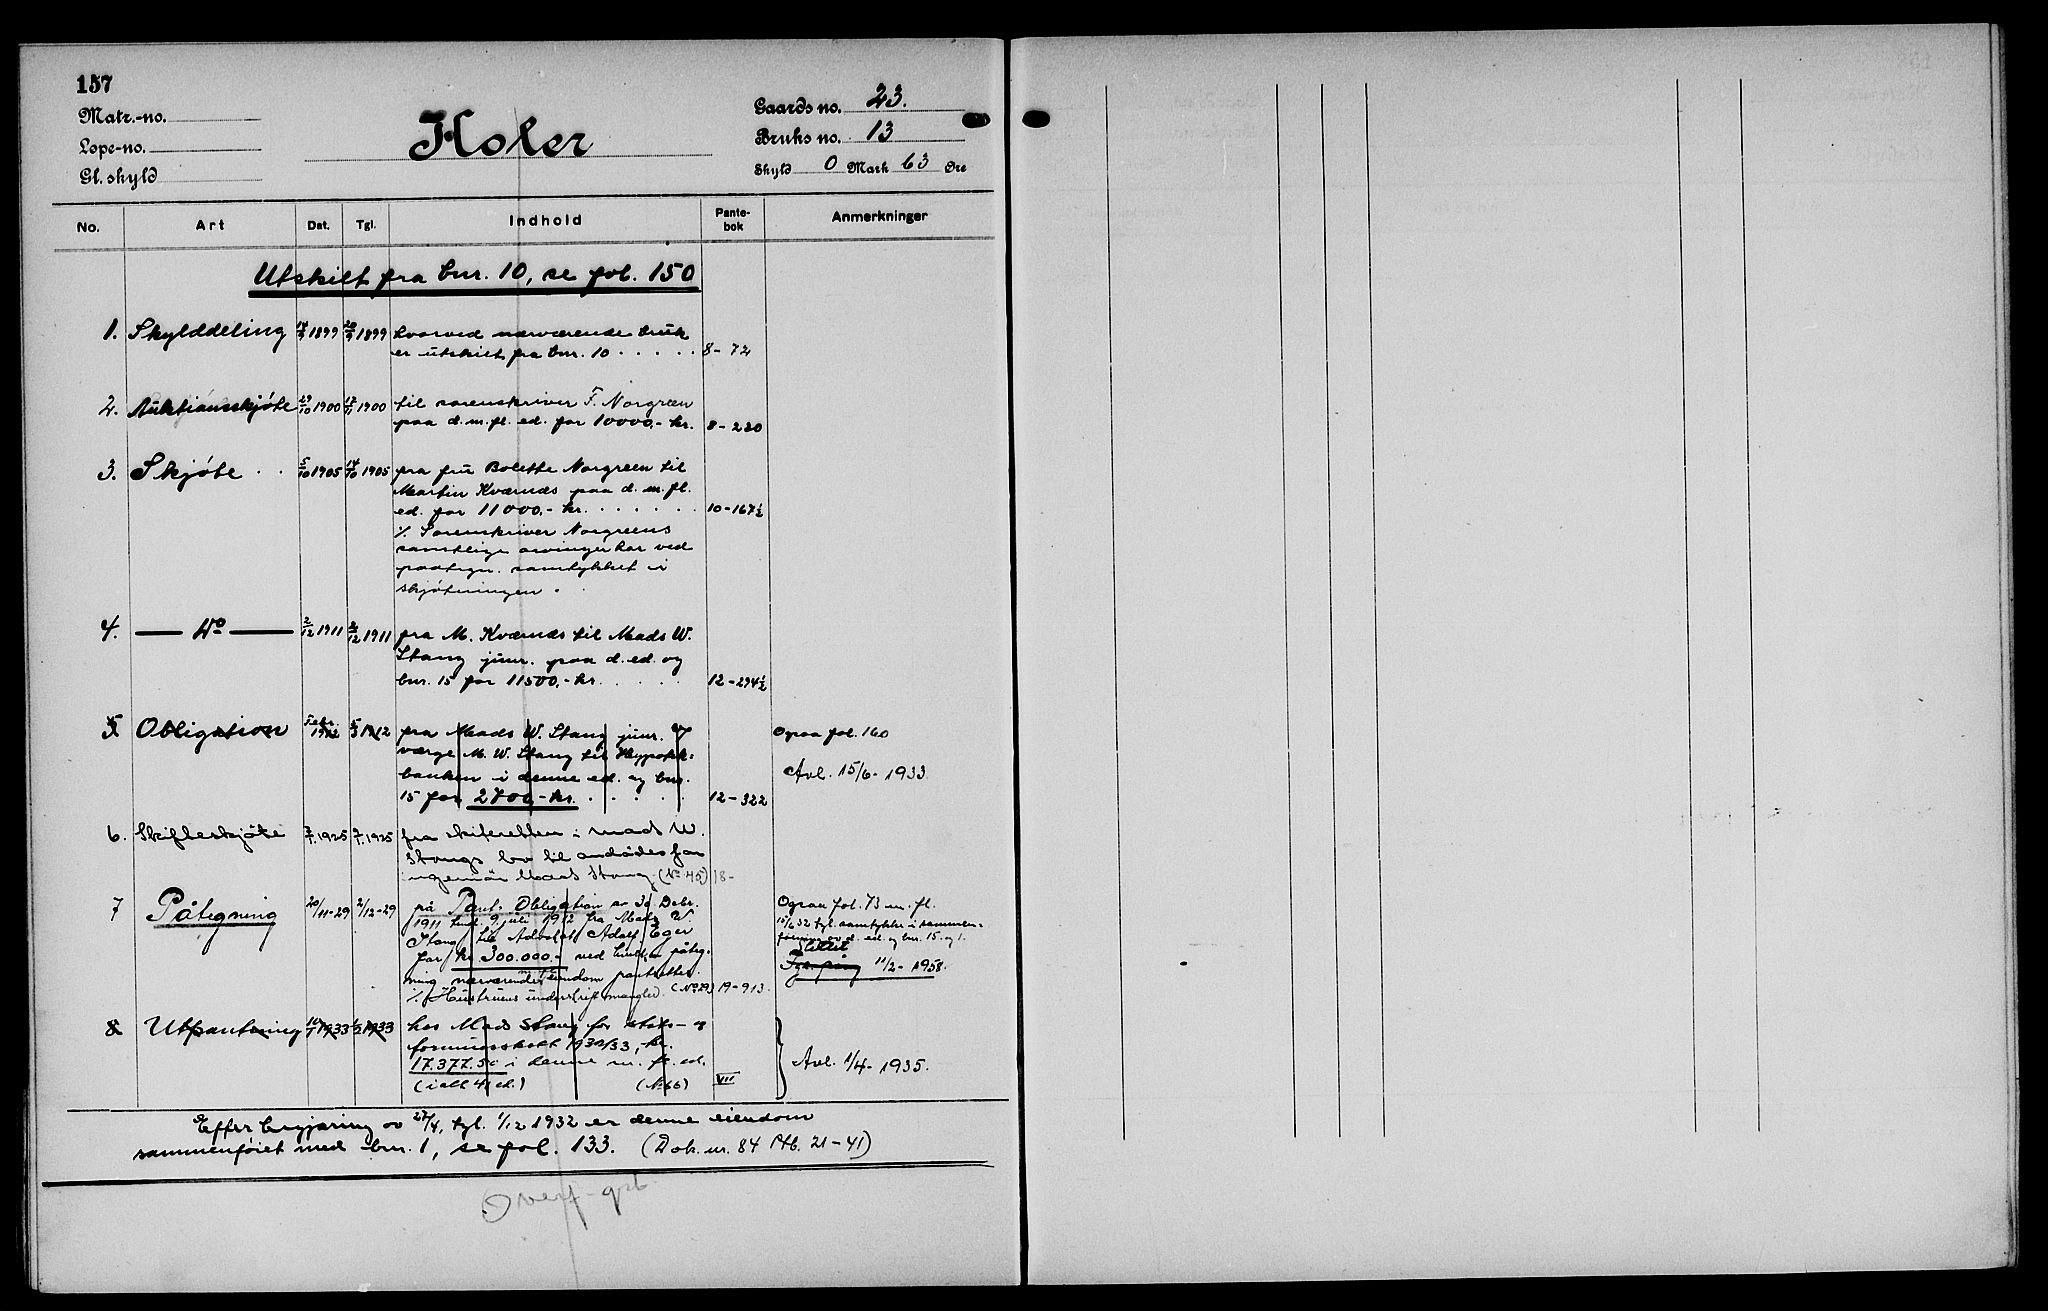 157
Matr.-no.
Løpe-no.
Gl. skyld
Holer
Gaards no. 23.
Bruks no. 13
Skyld 0 Mark 63 Øre
No. Art Dat. Tgl. Indhold Pante-bok Anmerkninger
Utskilt fra bnr. 10, se fol. 150
1. Skylddeling 1899 1899 hvorved nærværende bruk
er utskilt fra bnr. 10 . . . . . 8 - 72
2. Auktionsskjøte 29/10 1900 17/11 1900 til sorenskriver F. Norgreen
paa d. m. fl. ed. for 10000,- kr. 8 - 220
3. Skjøte . . 5/10 1905 14/10 1905 fra fru Bolette Norgreen til
Martin Kværnæs paa d. m. fl.
ed. for 11000,- kr. . . . . . . 10 - 167½
% Sorenskriver Norgreens
samtlige arvinger har ved
paategn. samtykket i
skjøtningen.
4. — do — 2/12 1911 2/12 1911 fra M. Kværnæs til Mads W.
Stang junr. paa d. ed. og
bnr. 15 for 11500,- kr. . . . . 12 - 294½
5 Obligation Febr. 1912 5/3 1912 fra Mads W. Stang junr. %
værge M. W. Stang til Hypotek-
banken i denne ed. og bnr.
15 for 2700,- kr. . . . . . 12 - 322
Ogsaa fol. 160
Avl. 15/6 - 1933.
6. Skifteskjøte 7/7 1925 7/7 1925 fra skifteretten i Mads W.
Stangs bo til
Mads Stang (No 45) 18 -
7 Påtegning 20/11-29 2/12-29 på Pant. Obligation av 30 Debr.
1911 tinl. 9 juli 1912 fra Mads W.
Stang til Advokat Adolf Eger
for kr 300.000.- ved hvilken påteg-
ning nærværende m. fl. eiendom pantsettes.
% Hustruens underskrift mangler. (No 29) 19 - 913.
Ogsaa fol. 73 m. fl.
15/6 32 tgl. samtykke i sammen-
føining av d. ed. og bnr. 15. og 1.
Slettet
11/2 - 1958.
8 Utpantning 10/1 1933 1/2 1933 hos Mads Stang for stats- og
formuesskatt 1932/33, kr.
17.377.50 i denne m. fl. ed.
(i alt 4 ed.) (No 66) VII
Avl. 1/4 - 1935.
Efter begjæring av 27/4, tgl. 1/12 1932 er denne eiendom
sammenføiet med bnr. 1, se fol. 133. (Dok. nr. 84 Ptb. 21 - 41)
Overf. grb.